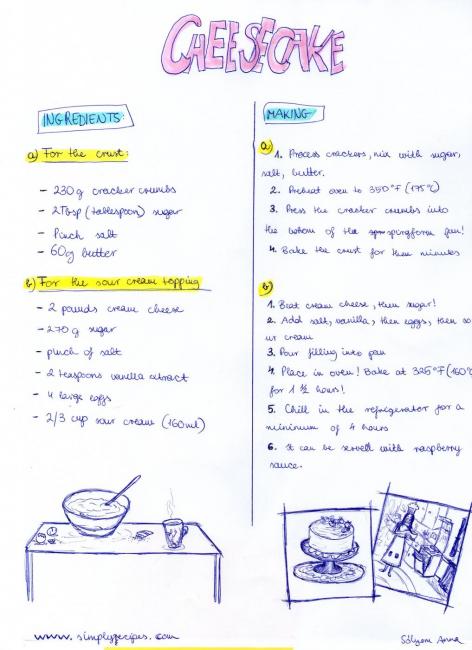 CHEESECAKE
INGREDIENTS:
a) For the crust:
- 230g cracker crumbs
- 2Tbsp (tablespoon) sugar
- Pinch salt
- 60g butter
b) For the sour cream topping
- 2 pounds cream cheese
- 270 g sugar
- pinch of salt
- 2 teaspoons vanilla extract
- 4 large eggs
- 2/3 cup sour cream (160ml)
MAKING
a)
1. Process crackers, mix with sugar,
salt, butter.
2. Preheat oven to 350°F (175°C)
3. Press the cracker crumbs into
the bottom of the springform pan!
4. Bake the crust for then minutes
b)
1. Beat cream cheese, then sugar!
2. Add salt, vanilla, then eggs, then so
ur cream
3. Pour filling into pan
4. Place in oven! Bake at 325°F (160°C
for 1 ½ hours!
5. Chill in the refrigerator for a
minimum of 4 hours
6. It can be served with raspberry
sauce.
www.simplyrecipes.com
Sólyom Anna